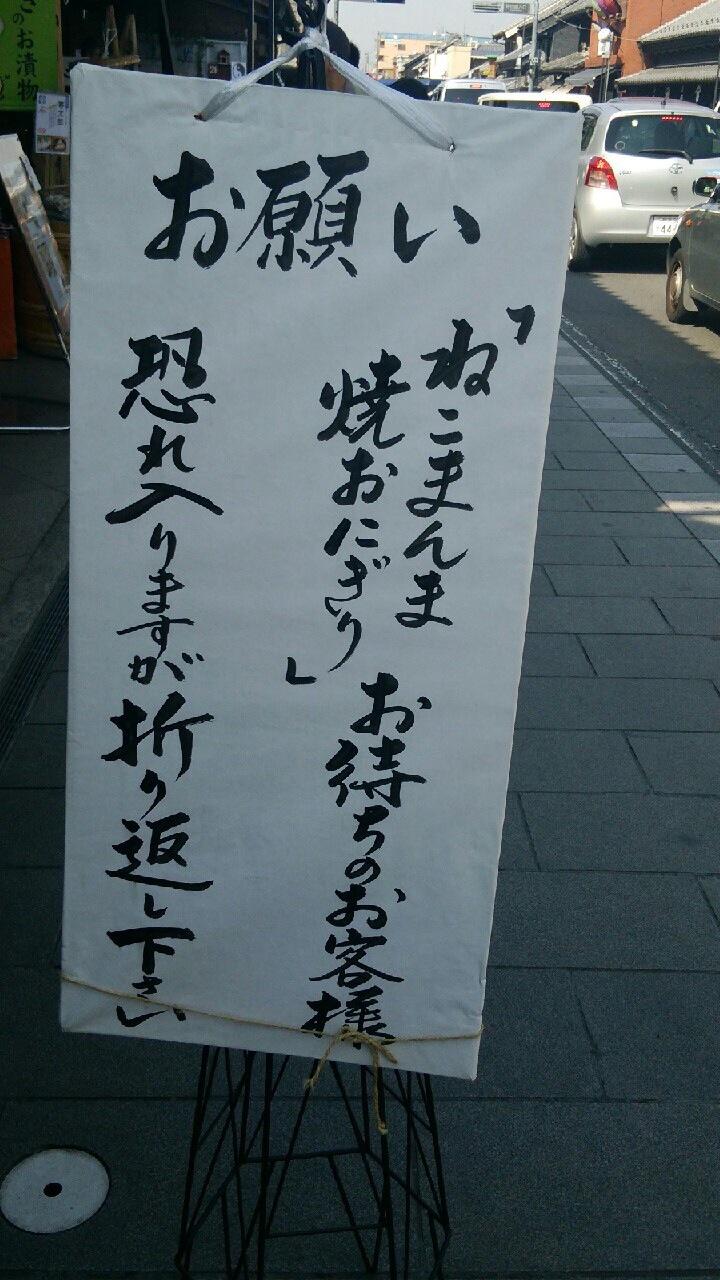 お願い
「ねこまんま
焼おにぎり」
お待ちのお客様
恐れ入りますが折り返し下さい
のお漬物